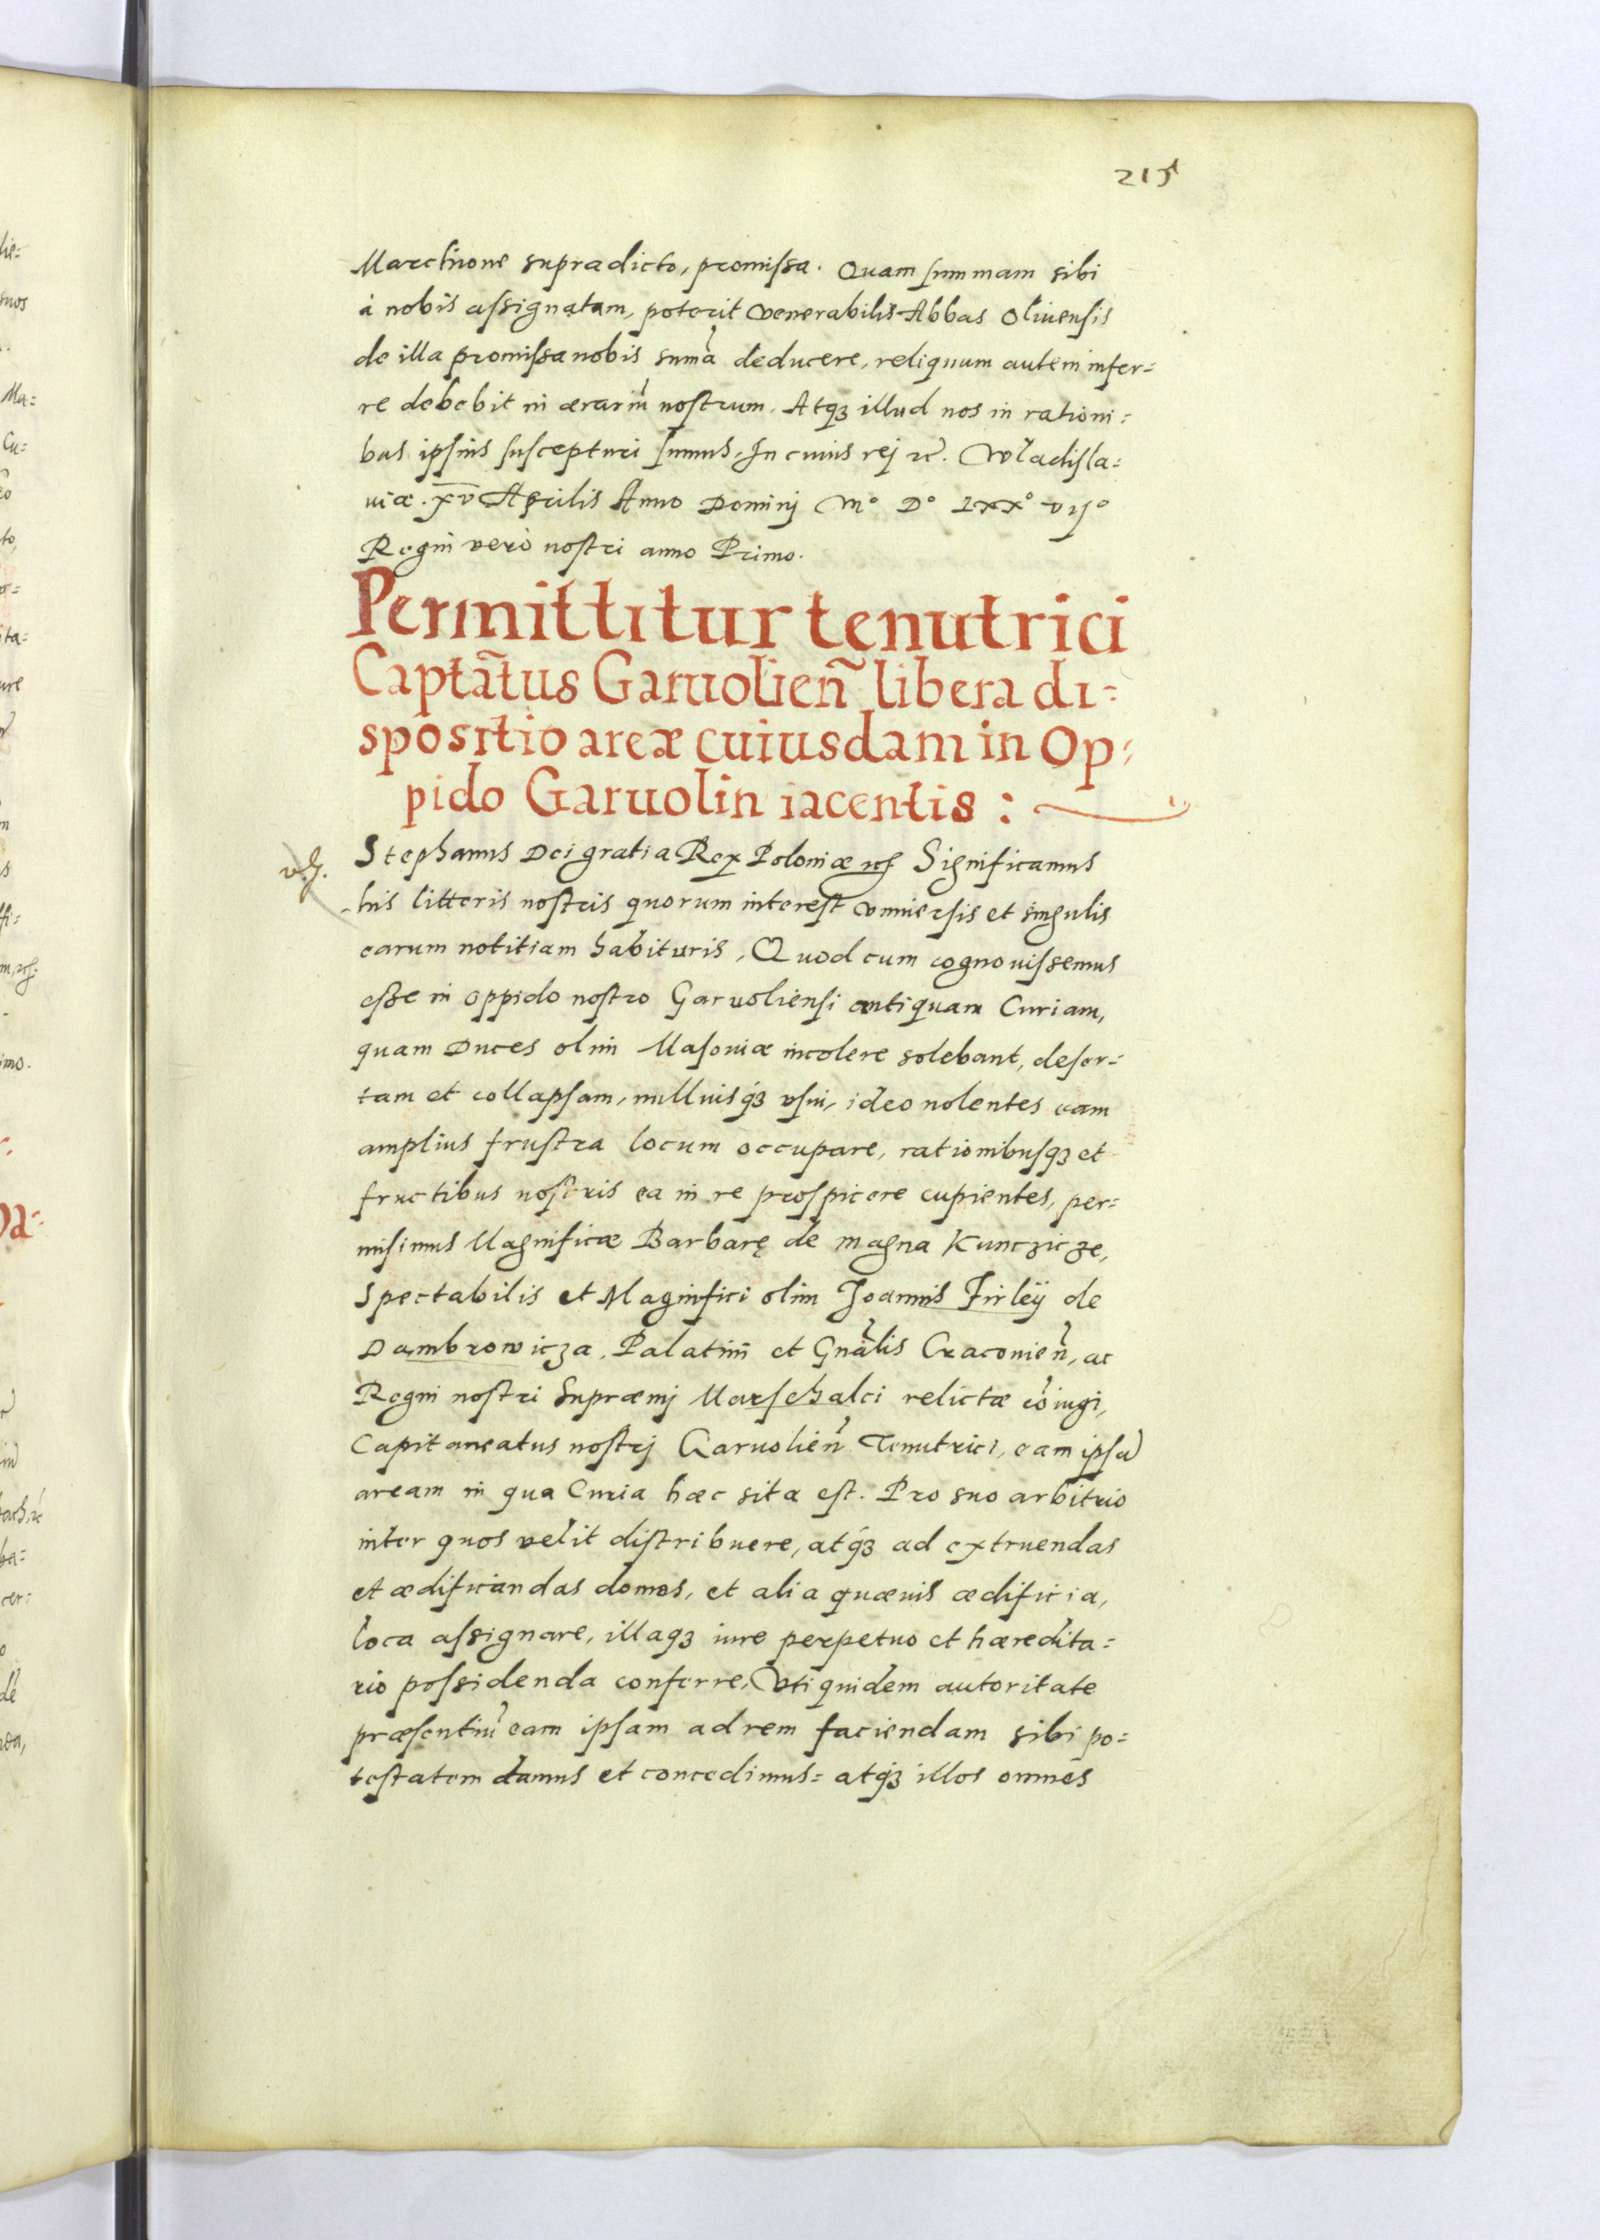 215
Marchione supradicto, promissa. Quam summam sibi
à nobis assignatam, poterit Venerabilis Abbas Oliuensis
de illa promissa nobis sum̃a deducere, reliquum autem infer=
re debebit in ærariũ nostrum. Atq3 illud nos in rationi=
bus ipsius suscepturi sumus. In cuius rej rc̃. Wladisla=
uiæ. xv Aprilis Anno Dominj M° D° LXX° vij°
Regni verò nostri anno Primo.
Permittitur tenutrici
Captãtus Garuolien̄ libera di=
spositio areæ cuiusdam in Op=
pido Garuolin iacentis :
Stephanus Dei gratia Rex Poloniæ rc̃ Significamus
his litteris nostris quorum interest vniuersis et singulis
earum notitiam habituris, Quod cum cognouissemus
esse in oppido nostro Garuoliensi antiquam Curiam,
quam Duces olim Masouiæ incolere solebant, deser=
tam et collapsam, nulliusq3 vsui, ideo nolentes eam
amplius frustra locum occupare, rationibusq3 et
fructibus nostris ea in re prospicere cupientes, per=
misimus Magnificæ Barbarę de magna Kunczicze,
Spectabilis et Magnifici olim Joannis Firleÿ de
Dambrowicza, Palatini et Gnãlis Cracouien̄, ac
Regni nostri Supræmj Marschalci relictæ cõiugi,
Capitaneatus nostrj Garuolien̄ Tenutrici, eam ipsã
aream in qua Curia hæc sita est. Pro suo arbitrio
inter quos velit distribuere, atq3 ad extruendas
et ædificandas domos, et alia quæuis ædificia,
loca assignare, illaq3 iure perpetuo et hæredita=
rio possidenda conferre, Vti quidem autoritate
præsentiũ eam ipsam ad rem faciendam sibi po=
testatem damus et concedimus= atq3 illos omnes